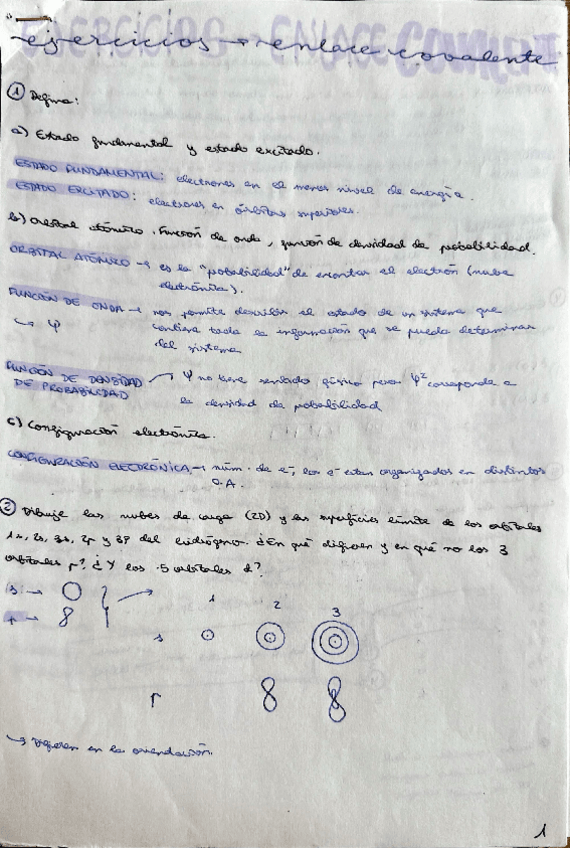 ejercicios → enlace covalente
① Defina:
a) Estado fundamental y estado excitado.
ESTADO FUNDAMENTAL: electrones en el menor nivel de energía.
ESTADO EXCITADO: electrones en órbitas superiores.
b) Orbital atómico, función de onda, función de densidad de probabilidad.
ORBITAL ATÓMICO → es la "probabilidad" de encontrar el electrón (nube
electrónica).
FUNCIÓN DE ONDA → nos permite describir el estado de un sistema que
↳ Ψ contiene toda la información que se puede determinar
del sistema
FUNCIÓN DE DENSIDAD
DE PROBABILIDAD
Ψ no tiene sentido físico pero Ψ² corresponde a
la densidad de probabilidad
c) Configuración electrónica.
CONFIGURACIÓN ELECTRÓNICA → núm. de e⁻, los e⁻ estan organizados en distintos
O.A.
② Dibuje las nubes de carga (2D) y las superficies límite de los orbitales
1s, 2s, 3s, 2p y 3p del hidrógeno. ¿En qué difieren y en qué no los 3
orbitales p? ¿Y los 5 orbitales d?
s →
p →
1 2 3
s
p
↳ Difieren en la orientación.
1